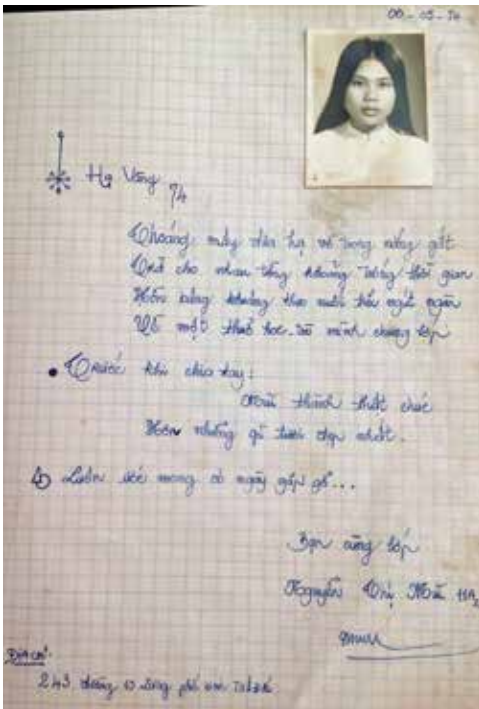 06-05-74
Hạ Vàng 74
Thoáng mây mùa hạ về trong nắng gắt
Trả cho nhau từng khoảng trống thời gian
Hồn bâng khuâng theo nuối tiếc ngút ngàn
Về một thuở học trò mình chung lớp
Trước khi chia tay:
Mùi thành thật chúc
Hơn những gì tươi đẹp nhất.
Luôn ước mong có ngày gặp gỡ...
Bạn cùng lớp
Nguyễn Thị Mùi 11A
Địa chỉ:
243 đường